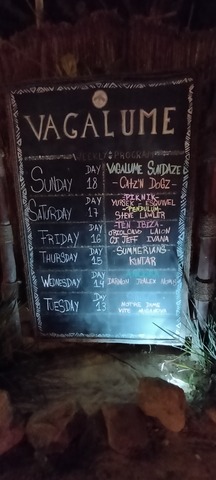 VAGALUME
WEEKLY PROGRAM
SUNDAY DAY 18 VAGALUME SUNDAZE
- CATZ'N DOGZ -
SATURDAY DAY 17 PIKNIK
YUBER & ESQUIVEL
STEVE LAWLER
FRIDAY DAY 16 TEN IBIZA
LAION
CJ JEFF IVANA
THURSDAY DAY 15 - SUMMERJAMS -
KINTAR
WEDNESDAY DAY 14
TUESDAY DAY 13 NOTRE DAME